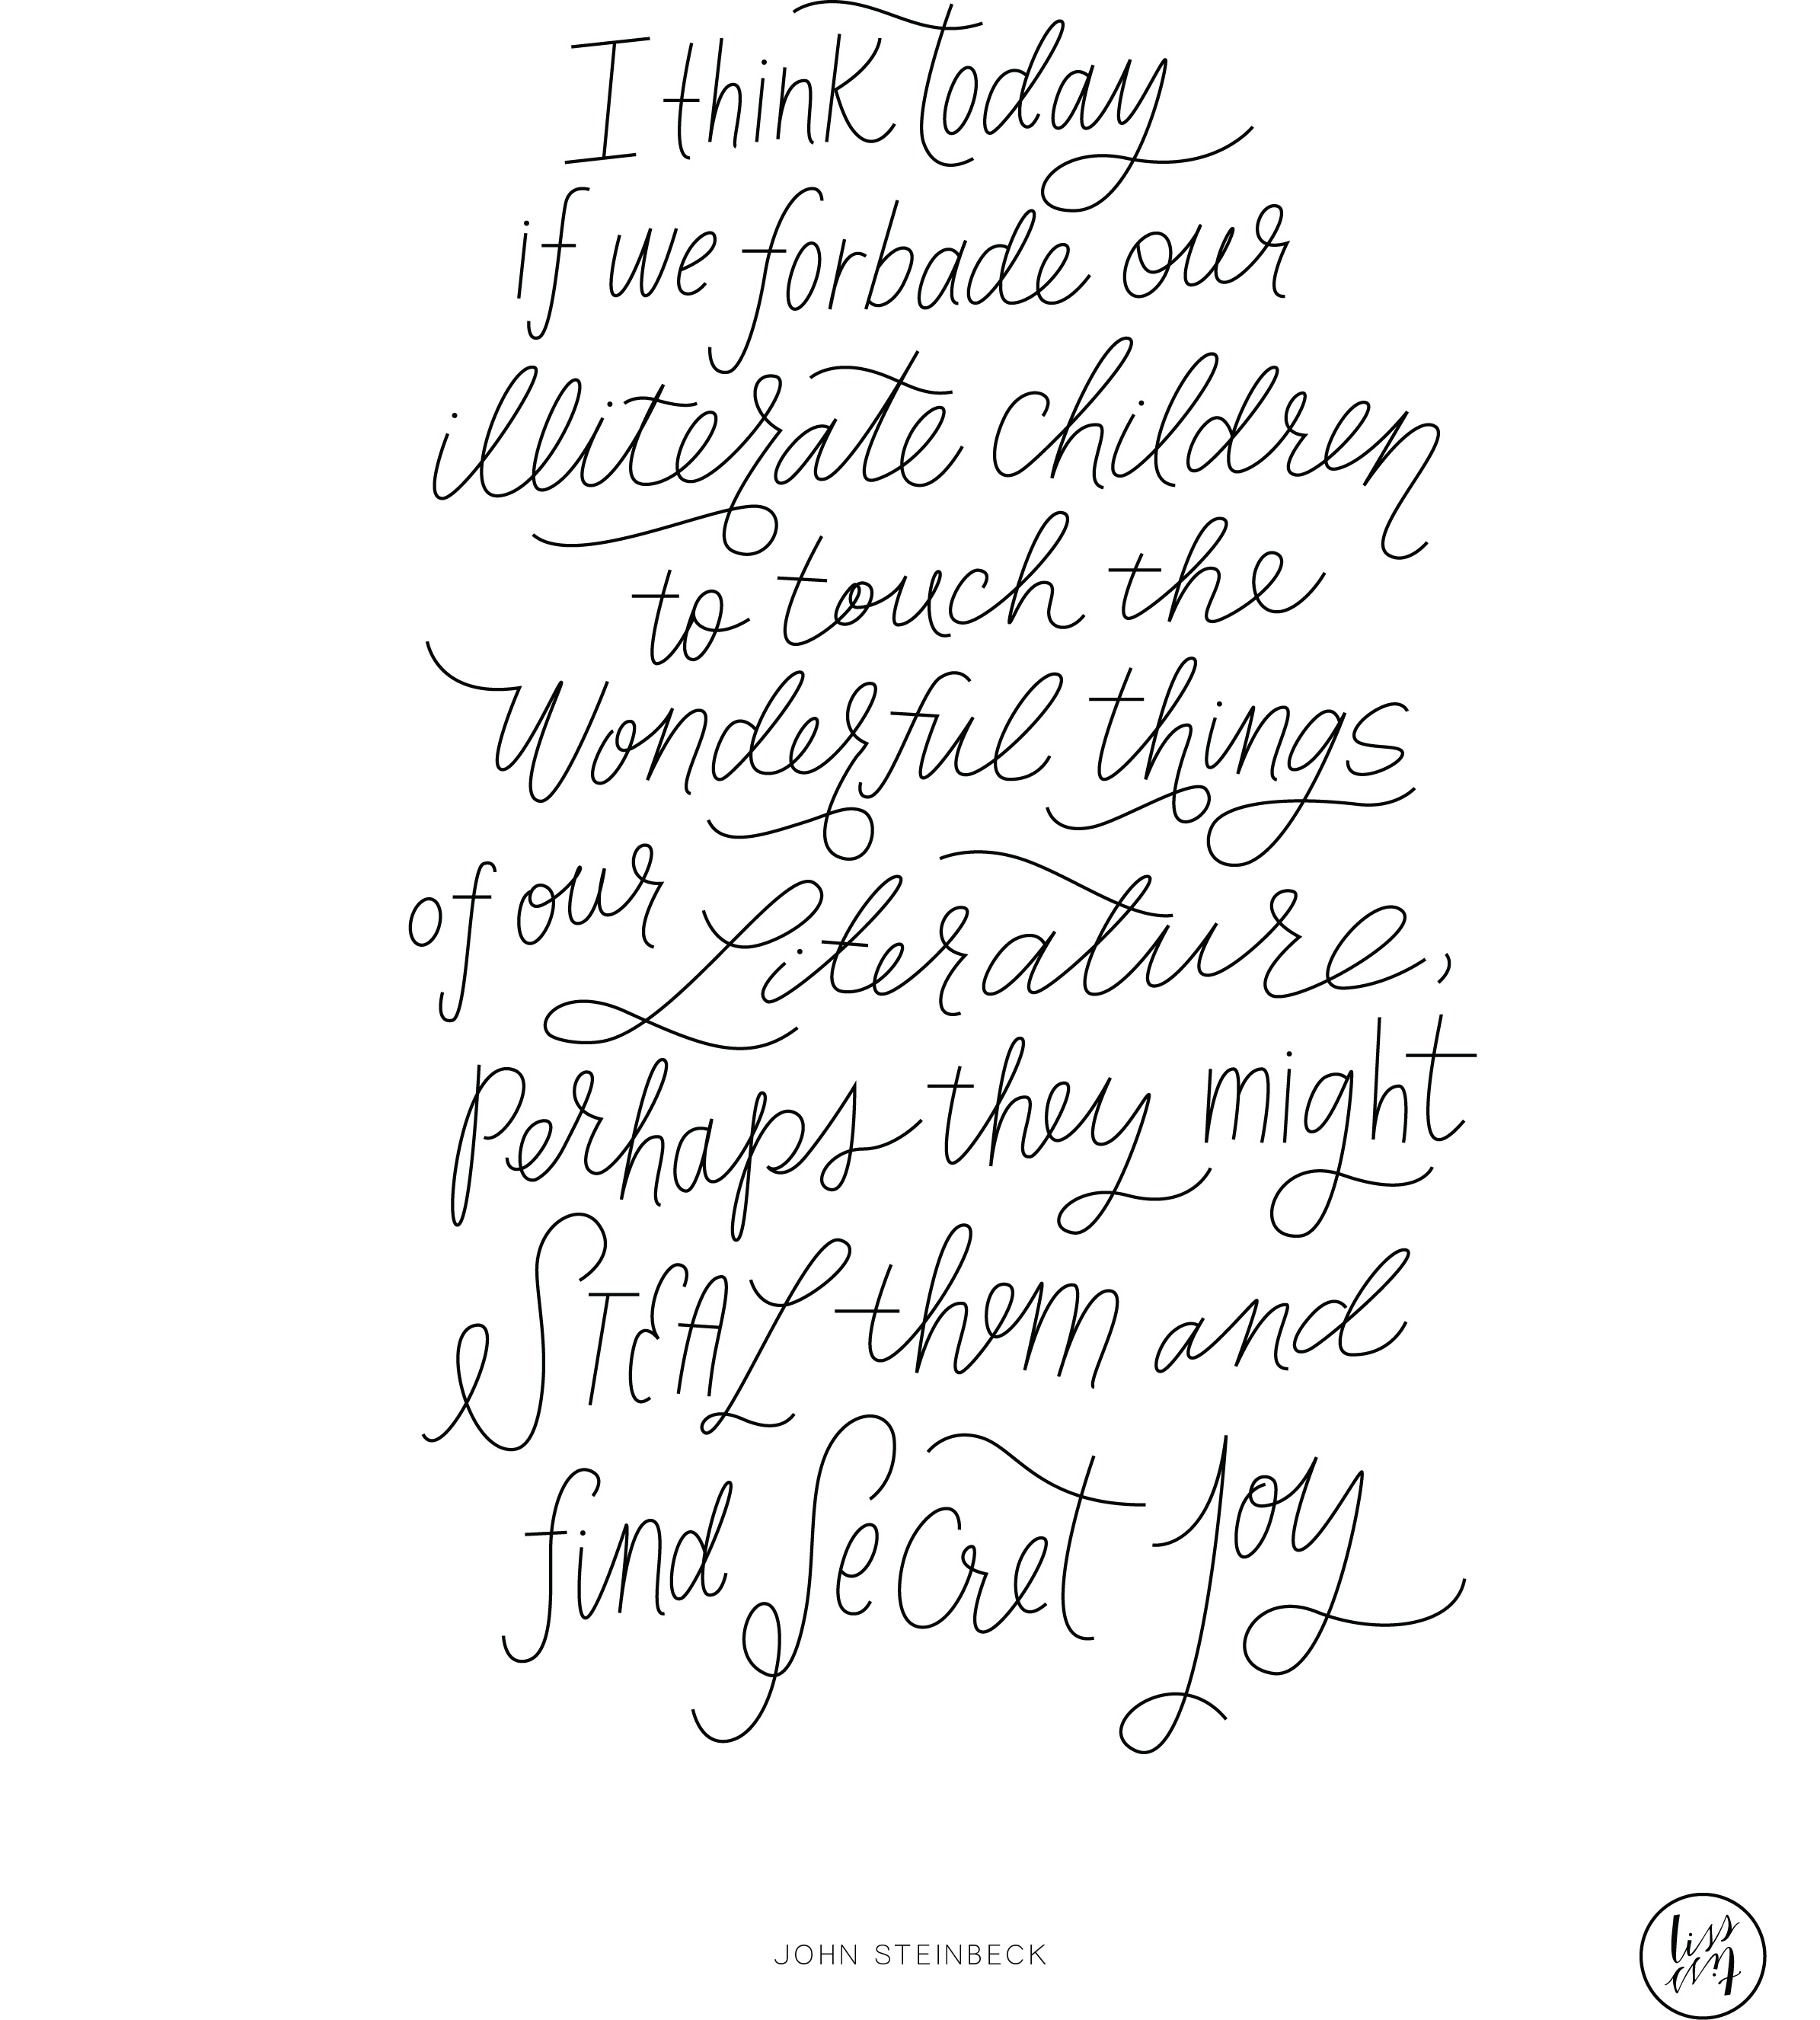 I think today
if we forbade our
illiterate children
to touch the
Wonderful things
of our Literature,
perhaps they might
STEAL them and
find Secret Joy
JOHN STEINBECK